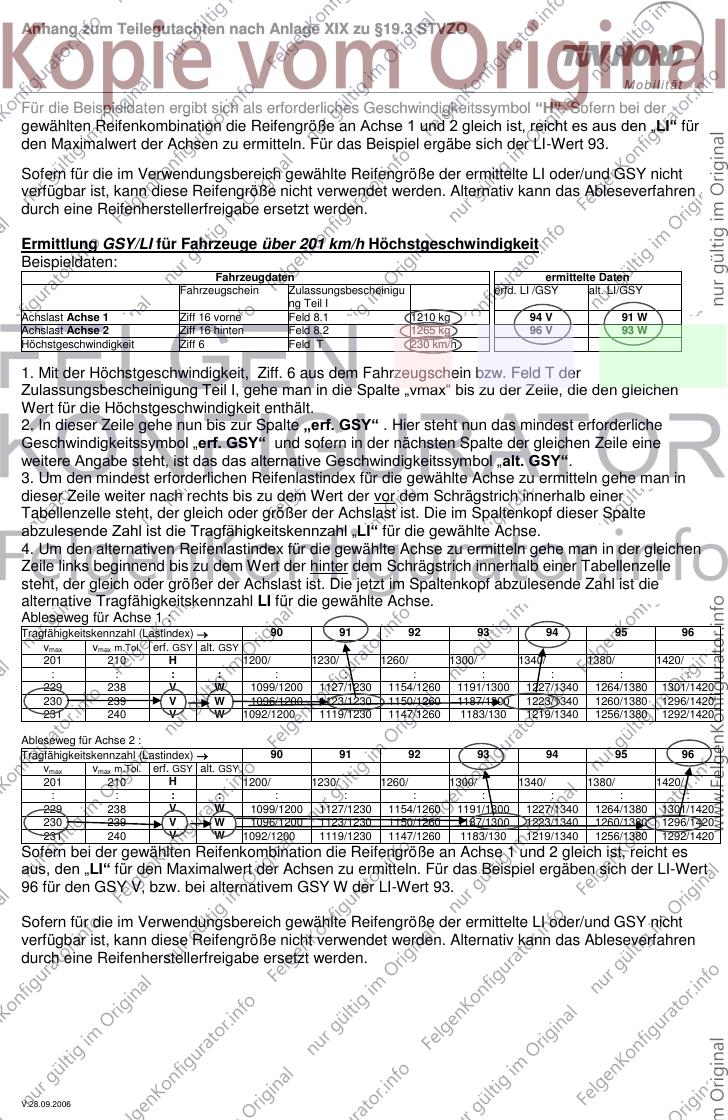 Anhang zum Teilegutachten nach Anlage XIX zu §19.3 STVZO
Kopie vom Original
TÜV NORD
Mobilität
Für die Beispieldaten ergibt sich als erforderliches Geschwindigkeitssymbol “H“. Sofern bei der
gewählten Reifenkombination die Reifengröße an Achse 1 und 2 gleich ist, reicht es aus den „LI“ für
den Maximalwert der Achsen zu ermitteln. Für das Beispiel ergäbe sich der LI-Wert 93.
Sofern für die im Verwendungsbereich gewählte Reifengröße der ermittelte LI oder/und GSY nicht
verfügbar ist, kann diese Reifengröße nicht verwendet werden. Alternativ kann das Ableseverfahren
durch eine Reifenherstellerfreigabe ersetzt werden.
Ermittlung GSY/LI für Fahrzeuge über 201 km/h Höchstgeschwindigkeit
Beispieldaten:
Fahrzeugdaten ermittelte Daten
Fahrzeugschein Zulassungsbescheinigu erfd. LI /GSY alt. LI/GSY
ng Teil I
Achslast Achse 1 Ziff 16 vorne Feld 8.1 1210 kg 94 V 91 W
Achslast Achse 2 Ziff 16 hinten Feld 8.2 1265 kg 96 V 93 W
Höchstgeschwindigkeit Ziff 6 Feld T 230 km/h
FELGEN
KONFIGURATOR
FelgenKonfigurator.info
1. Mit der Höchstgeschwindigkeit, Ziff. 6 aus dem Fahrzeugschein bzw. Feld T der
Zulassungsbescheinigung Teil I, gehe man in die Spalte „vmax“ bis zu der Zeile, die den gleichen
Wert für die Höchstgeschwindigkeit enthält.
2. In dieser Zeile gehe nun bis zur Spalte „erf. GSY“ . Hier steht nun das mindest erforderliche
Geschwindigkeitssymbol „erf. GSY“ und sofern in der nächsten Spalte der gleichen Zeile eine
weitere Angabe steht, ist das das alternative Geschwindigkeitssymbol „alt. GSY“.
3. Um den mindest erforderlichen Reifenlastindex für die gewählte Achse zu ermitteln gehe man in
dieser Zeile weiter nach rechts bis zu dem Wert der vor dem Schrägstrich innerhalb einer
Tabellenzelle steht, der gleich oder größer der Achslast ist. Die im Spaltenkopf dieser Spalte
abzulesende Zahl ist die Tragfähigkeitskennzahl „LI“ für die gewählte Achse.
4. Um den alternativen Reifenlastindex für die gewählte Achse zu ermitteln gehe man in der gleichen
Zeile links beginnend bis zu dem Wert der hinter dem Schrägstrich innerhalb einer Tabellenzelle
steht, der gleich oder größer der Achslast ist. Die jetzt im Spaltenkopf abzulesende Zahl ist die
alternative Tragfähigkeitskennzahl LI für die gewählte Achse.
Ableseweg für Achse 1 :
Tragfähigkeitskennzahl (Lastindex) → 90 91 92 93 94 95 96
vmax vmax m.Tol. erf. GSY alt. GSY
201 210 H 1200/ 1230/ 1260/ 1300/ 1340/ 1380/ 1420/
: : : : : : : : : : :
229 238 V W 1099/1200 1127/1230 1154/1260 1191/1300 1227/1340 1264/1380 1301/1420
230 239 V W 1096/1200 1123/1230 1150/1260 1187/1300 1223/1340 1260/1380 1296/1420
231 240 V W 1092/1200 1119/1230 1147/1260 1183/130 1219/1340 1256/1380 1292/1420
Ableseweg für Achse 2 :
Tragfähigkeitskennzahl (Lastindex) → 90 91 92 93 94 95 96
vmax vmax m.Tol. erf. GSY alt. GSY
201 210 H 1200/ 1230/ 1260/ 1300/ 1340/ 1380/ 1420/
: : : : : : : : : : :
229 238 V W 1099/1200 1127/1230 1154/1260 1191/1300 1227/1340 1264/1380 1301/1420
230 239 V W 1096/1200 1123/1230 1150/1260 1187/1300 1223/1340 1260/1380 1296/1420
231 240 V W 1092/1200 1119/1230 1147/1260 1183/130 1219/1340 1256/1380 1292/1420
Sofern bei der gewählten Reifenkombination die Reifengröße an Achse 1 und 2 gleich ist, reicht es
aus, den „LI“ für den Maximalwert der Achsen zu ermitteln. Für das Beispiel ergäben sich der LI-Wert
96 für den GSY V, bzw. bei alternativem GSY W der LI-Wert 93.
Sofern für die im Verwendungsbereich gewählte Reifengröße der ermittelte LI oder/und GSY nicht
verfügbar ist, kann diese Reifengröße nicht verwendet werden. Alternativ kann das Ableseverfahren
durch eine Reifenherstellerfreigabe ersetzt werden.
nur gültig im Original
www.FelgenKonfigurator.info
V:28.09.2006